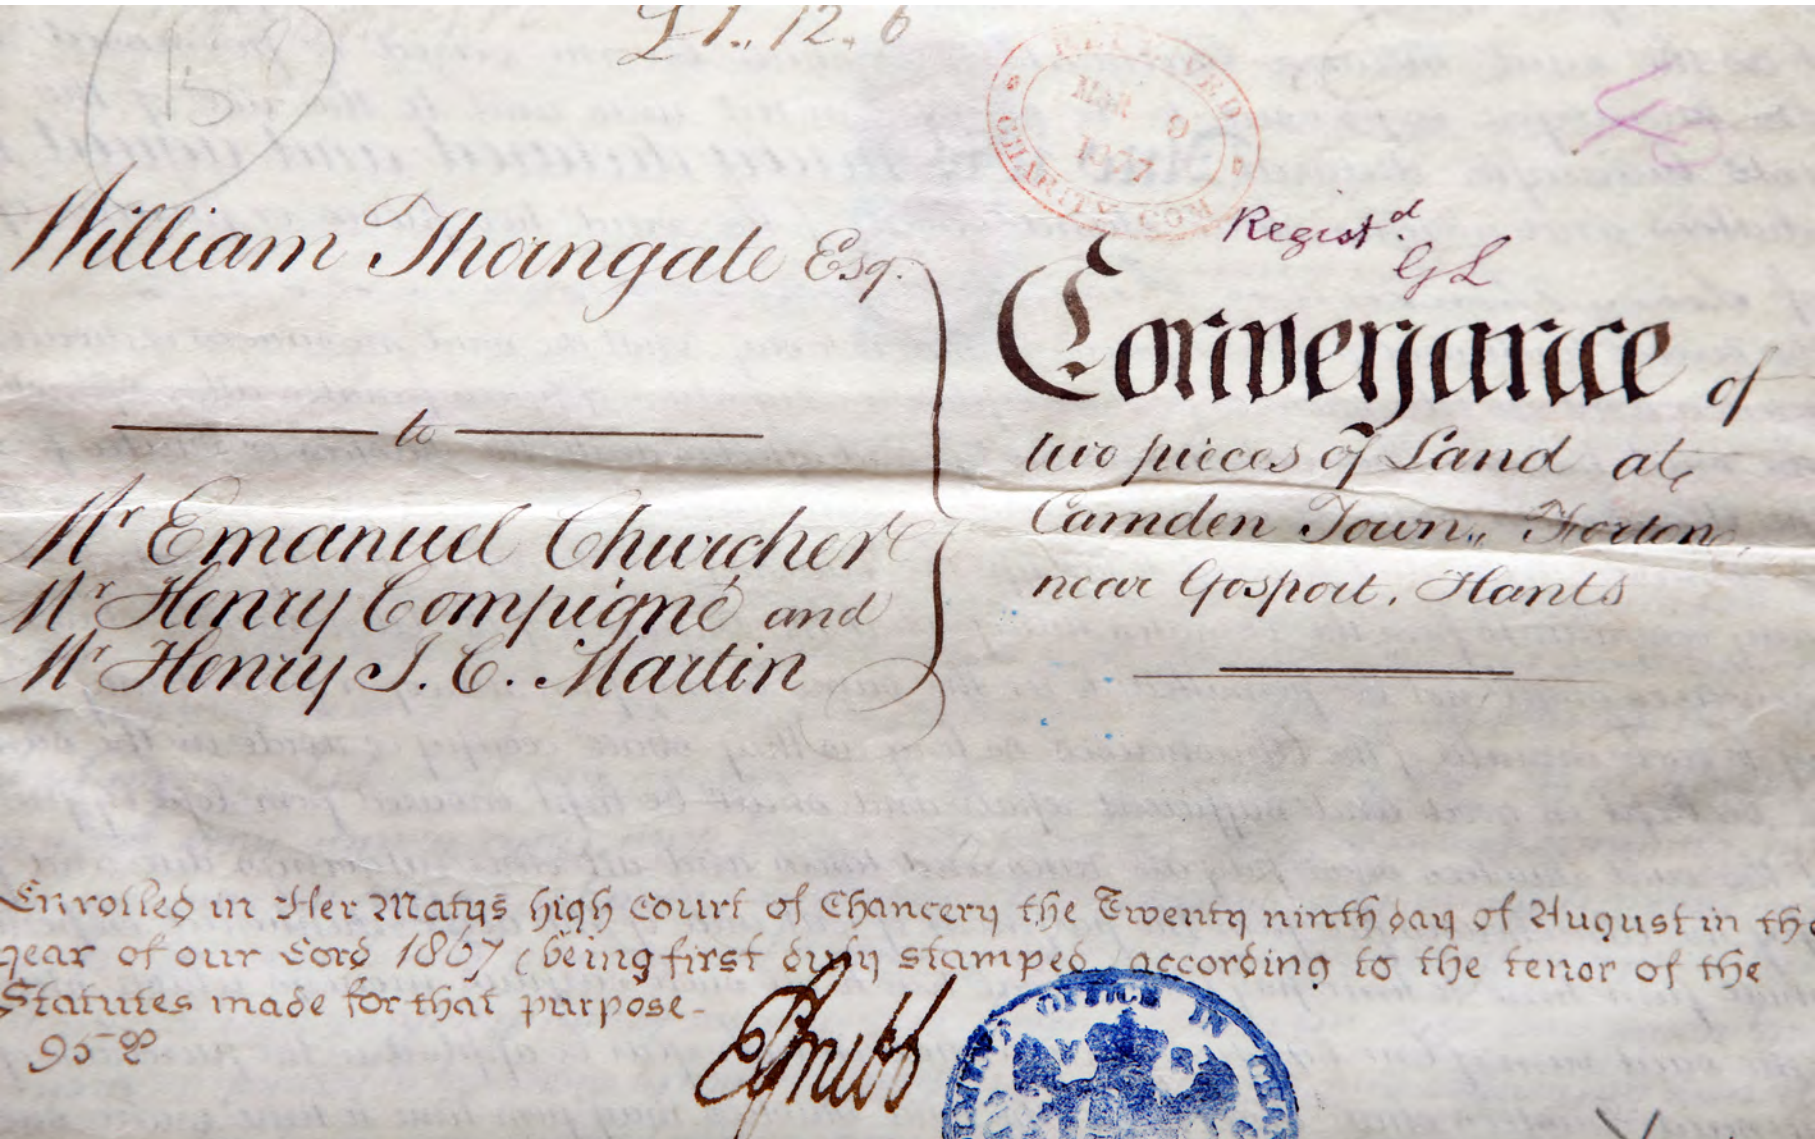 15
£1.,12.6
RECEIVED
MAR 9
1977
CHARITY COM
Regist.d
GL
William Thorngate Esq.
to
Mr Emanuel Churcher
Mr Henry Compigné and
Mr Henry J. C. Martin
Conveyance of
two pieces of Land at
Camden Town,, Forton,
near Gosport, Hants
Enrolled in Her Matys high Court of Chancery the Twenty ninth day of August in the
year of our Lord 1867 (being first duly stamped) according to the tenor of the
Statutes made for that purpose.
OFFICE IN